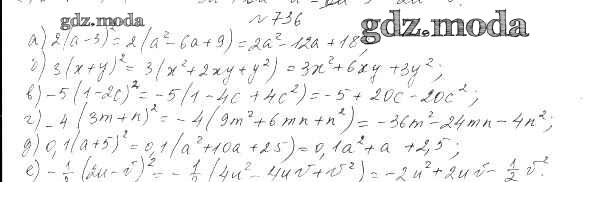 №736
gdz.moda
gdz.moda
а) 2(a-3)² = 2(a²-6a+9) = 2a²-12a+18;
б) 3(x+y)² = 3(x²+2xy+y²) = 3x²+6xy+3y²;
в) -5(1-2c)² = -5(1-4c+4c²) = -5+20c-20c²;
г) -4(3m+n)² = -4(9m²+6mn+n²) = -36m²-24mn-4n²;
д) 0,1(a+5)² = 0,1(a²+10a+25) = 0,1a²+a+2,5;
е) -½(2u-v)² = -½(4u²-4uv+v²) = -2u²+2uv-½v².